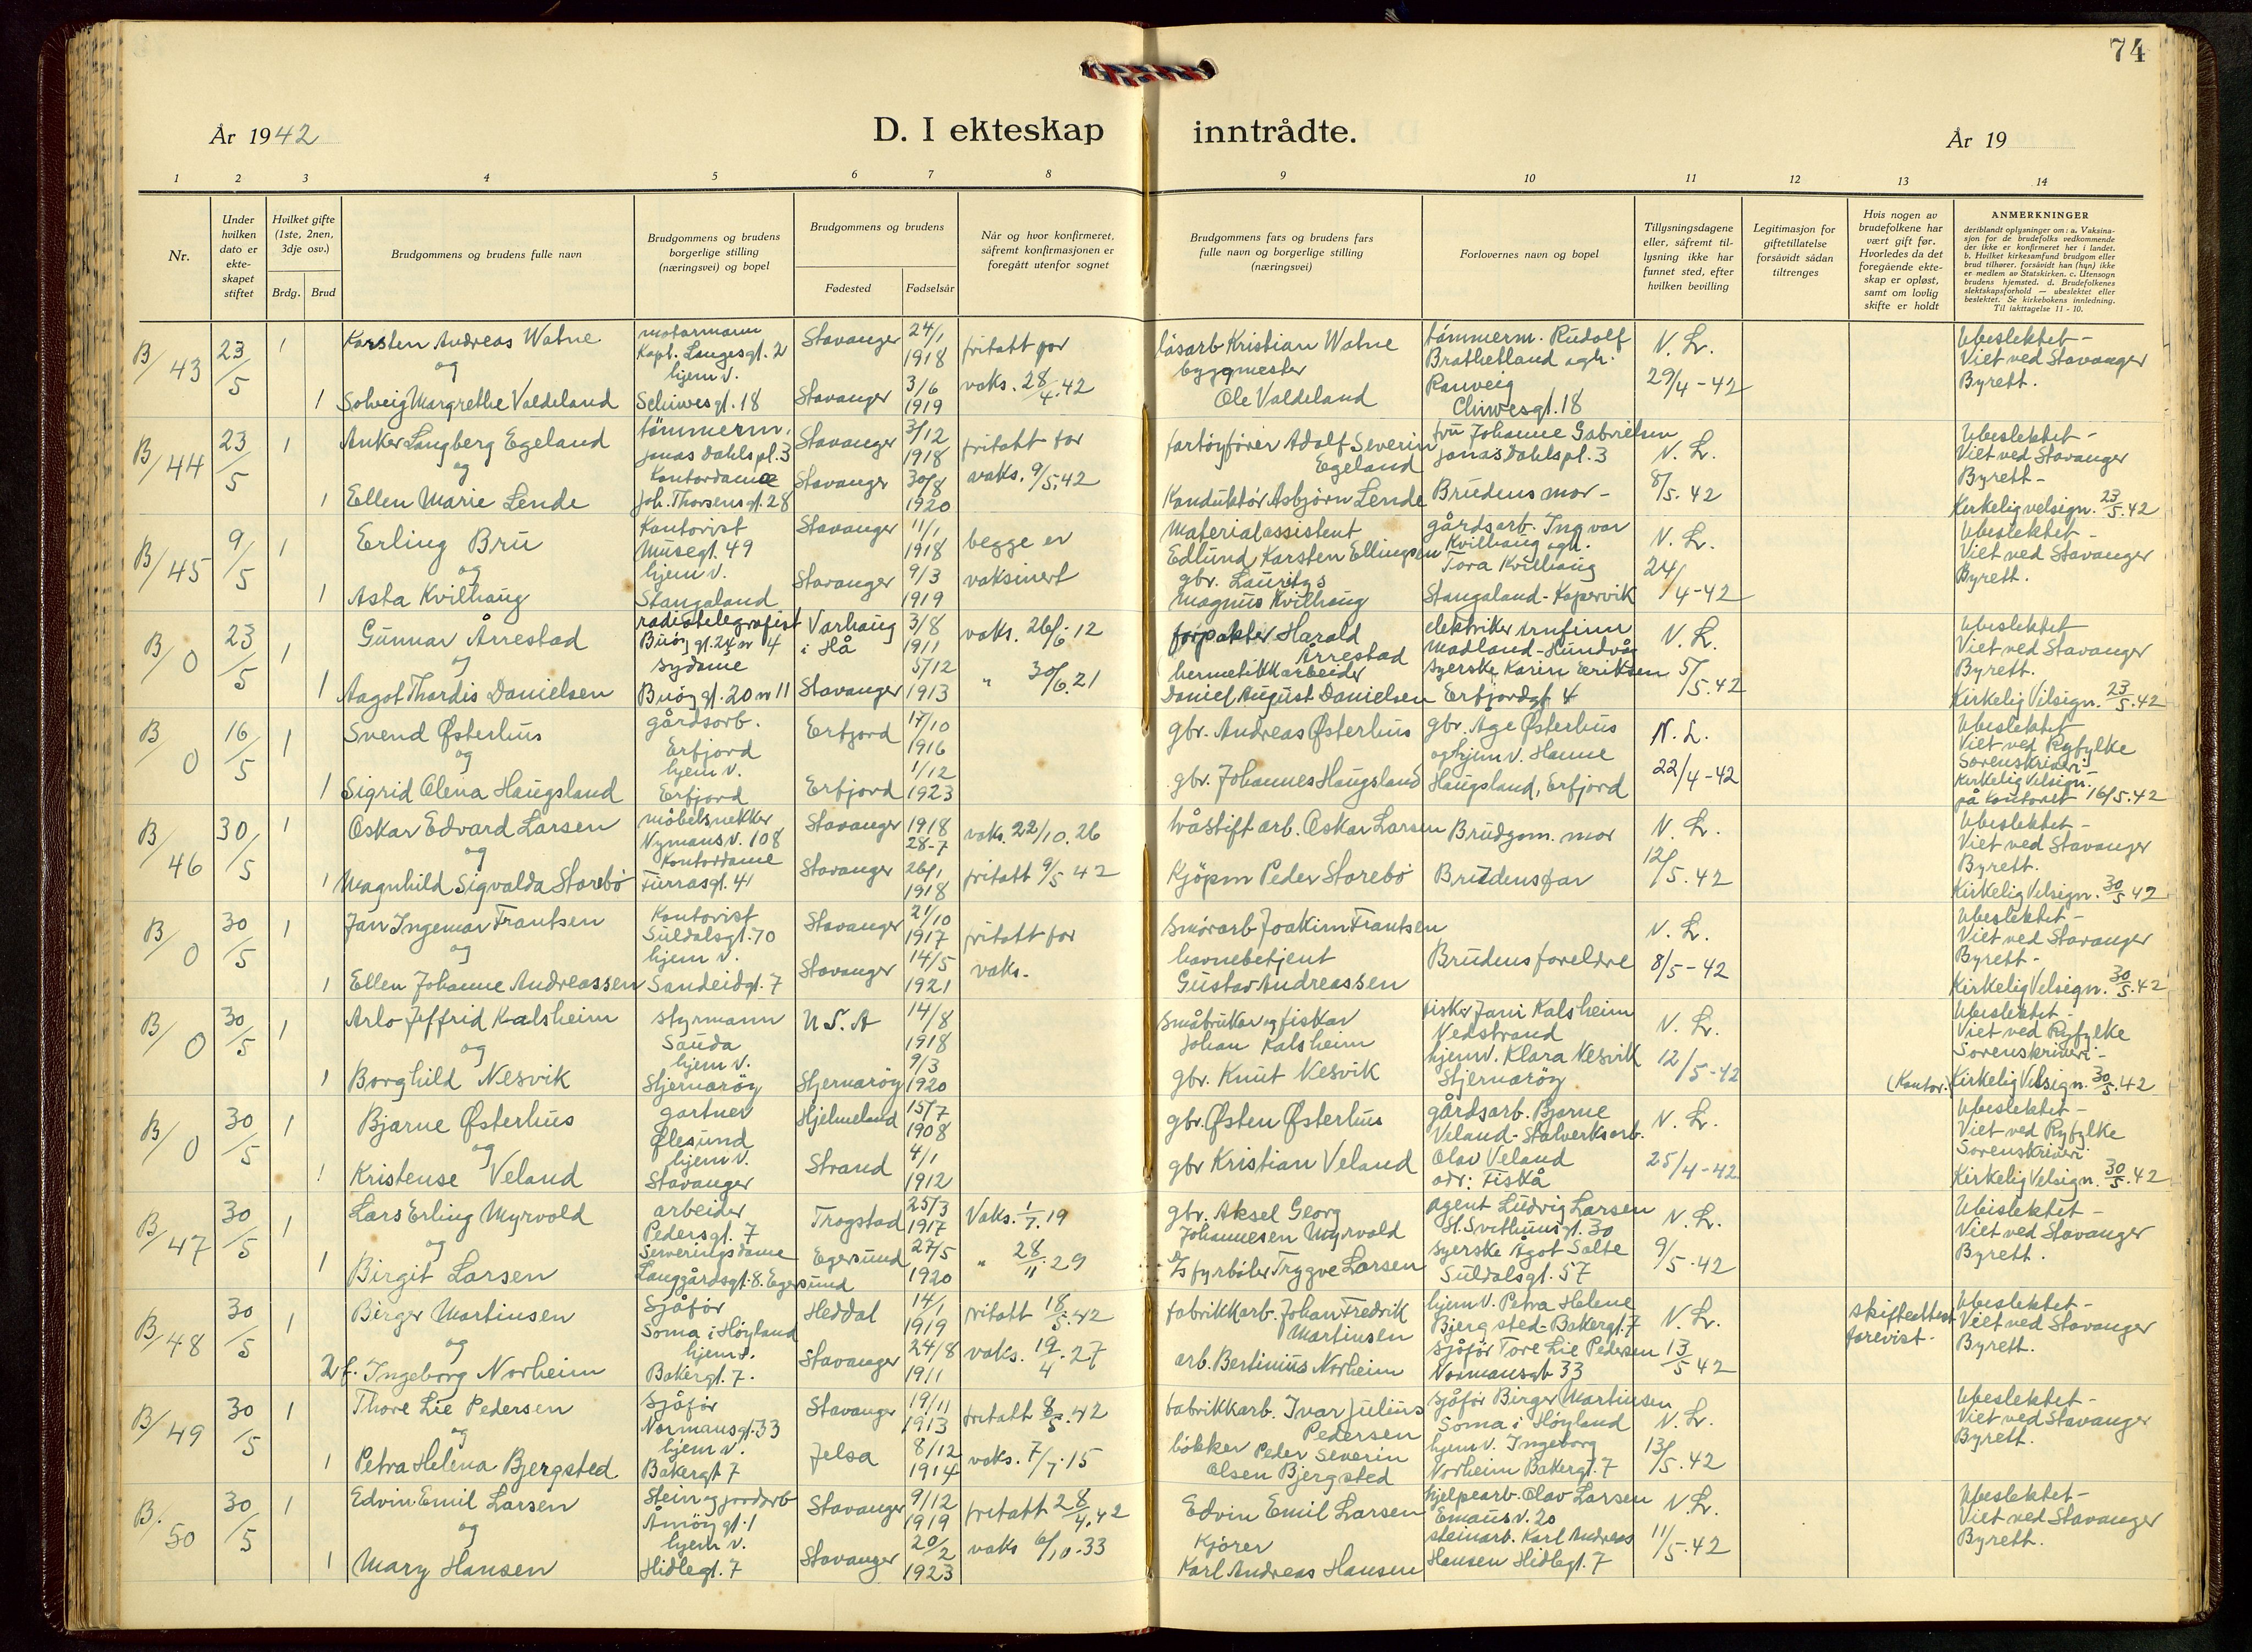 74
År 1942
D. I ekteskap inntrådte.
År 19
1 2 3 4 5 6 7 8 9 10 11 12 13 14
Nr.
Under hvilken dato er ekte-skapet stiftet
Hvilket gifte (1ste, 2nen, 3dje osv.)
Brdg. Brud
Brudgommens og brudens fulle navn
Brudgommens og brudens borgerlige stilling (næringsvei) og bopel
Brudgommens og brudens
Fødested Fødselsår
Når og hvor konfirmeret, såfremt konfirmasjonen er foregått utenfor sognet
Brudgommens fars og brudens fars fulle navn og borgerlige stilling (næringsvei)
Forlovernes navn og bopel
Tillysningsdagene eller, såfremt til-lysning ikke har funnet sted, efter hvilken bevilling
Legitimasjon for giftetillatelse forsåvidt sådan tiltrenges
Hvis nogen av brudefolkene har vært gift før. Hvorledes da det foregående ekte-skap er opløst, samt om lovlig skifte er holdt
ANMERKNINGER
deriblandt oplysninger om: a. Vaksina-sjon for de brudefolks vedkommende der ikke er konfirmeret her i landet. b. Hvilket kirkesamfund brudgom eller brud tilhører, forsåvidt han (hun) ikke er medlem av Statskirken. c. Utensogn brudens hjemsted. d. Brudefolkenes slektskapsforhold — ubeslektet eller beslektet. Se kirkebokens innledning. Til iakttagelse 11 - 10.
B/43 23/5 1 Karsten Andreas Watne motormann Kapt. Langesgt. 2 Stavanger 24/1 1918 fritatt for
låsarb Kristian Watne tømmerm. Rudolf Brathetland og h. N. L. Ubeslektet -
og
1 Solveig Margrethe Valdeland hjem v. Schiwesgt. 18 Stavanger 3/6 1919 vaks. 28/4.42
byggmester Ole Valdeland Ranveig Chiwesgt. 18 29/4-42 Viet ved Stavanger Byrett.
B/44 23/5 1 Anker Langberg Egeland tømmerm. Jonas Dahlspl. 3 Stavanger 3/12 1918 fritatt for
fartøyfører Adolf Severin Egeland fru Johanne Gabrielsen Jonas Dahlspl. 3 N. L. Ubeslektet - Viet ved Stavanger Byrett -
og
1 Ellen Marie Lende Kontordame Joh. Thorsensgt. 28 Stavanger 30/8 1920 vaks. 9/5.42
Konduktør Asbjørn Lende Brudens mor - 8/5.42 Kirkelig velsign. 23/5.42
B/45 9/5 1 Erling Bru Kontorist Musegt. 49 Stavanger 11/1 1918 begge er
Materialassistent Edlund Karsten Ellingsen gårdsarb. Ingvar Kvilhaug og h. N. L. Ubeslektet - Viet ved Stavanger
og
1 Asta Kvilhaug hjem v. Stangaland Stavanger 9/3 1919 vaksinert
gbr. Lauritys Magnus Kvilhaug Tora Kvilhaug Stangaland - Kopervik 24/4-42 Byrett.
B/0 23/5 1 Gunnar Årrestad radiotelegrafist Buøygt. 24 nr 4 Varhaug i Hå 3/8 1911 vaks. 26/6.12
forpakter Harald Årrestad elektriker Arnfinn Madland - Hundvåg N. L. Ubeslektet Viet ved Stavanger Byrett.
og
1 Aagot Thordis Danielsen sydame Buøygt. 20 nr 11 Stavanger 5/12 1913 " 30/6.21
hermetikkarbeider Daniel August Danielsen syerske Karin Eeriksen Erfjordgt 4 5/5.42 Kirkelig Velsign. 23/5.42
B/0 16/5 1 Svend Østerhus gårdsarb. Erfjord Erfjord 17/10 1916
gbr. Andreas Østerhus gbr. Åge Østerhus N. L. Ubeslektet Viet ved Ryfylke Sorenskriveri
og
1 Sigrid Olena Haugsland hjem v. Erfjord Erfjord 1/12 1923
gbr. Johannes Haugsland og hjem v. Hanne Haugsland, Erfjord 22/4-42 Kirkelig Velsign. på kontoret 16/5.42
B/46 30/5 1 Oskar Edvard Larsen møbelsnekker Nymansv. 108 Stavanger 1918 28-7 vaks. 22/10.26
tråstift arb. Oskar Larsen Brudgom. mor N. L. Ubeslektet - Viet ved Stavanger Byrett.
og
1 Magnhild Sigvalda Storebø Kontordame Furrasgt. 41 Stavanger 26/1 1918 fritatt 9/5 42
Kjøpm Peder Storebø Brudens far 12/5.42 Kirkelig Velsign. 30/5.42
B/0 30/5 1 Jan Ingemar Frantsen Kontorist Suldalsgt. 70 Stavanger 21/10 1917 fritatt for
Smørarb Joakim Frantsen N. L. Ubeslektet - Viet ved Stavanger Byrett -
og
1 Ellen Johanne Andreassen hjem v. Sandeidgt. 7 Stavanger 14/5 1921 vaks -
havnebetjent Gustav Andreassen Brudens foreldre 8/5-42 Kirkelig Velsign. 30/5.42
B/0 30/5 1 Arlo Jeffrid Kalsheim styrmann Sauda U S. A 14/8 1918
småbruker og fisker Johan Kalsheim fisker Jani Kalsheim Nedstrand N. L. Ubeslektet - Viet ved Ryfylke Sorenskriveri -
og
1 Borghild Nesvik hjem v. Stjernarøy Stjernarøy 9/3 1920
gbr. Knut Nesvik hjem v. Klara Nesvik Stjernarøy 12/5-42 (Kontor.) Kirkelig Velsign. 30/5.42
B/0 30/5 1 Bjarne Østerhus gartner Ølesund Hjelmeland 15/7 1908
gbr. Østen Østerhus gårdsarb. Bjarne Veland - Stalverksarb. N. L. Ubeslektet - Viet ved Ryfylke Sorenskriveri
og
1 Kristense Veland hjem v. Stavanger Strand 4/1 1912
gbr Kristian Veland Olav Veland adr: Fiskå 25/4-42 Kirkelig Velsign. 30/5.42
B/47 30/5 1 Lars Erling Myrvold arbeider Pedersgt. 7 Trogstad 25/3 1917 Vaks. 1/7.19
gbr. Aksel Georg Johannesen Myrvold agent Ludvig Larsen St. Svithunsgt. 30 N. L. Ubeslektet - Viet ved Stavanger
og
1 Birgit Larsen Serveringsdame Langgårdsgt. 8. Egersund Egersund 27/5 1920 " 28/11.29
D/s fyrbøter Trygve Larsen syerske Ågot Salte Suldalsgt. 57 9/5.42 Byrett.
B/48 30/5 1 Birger Martinsen Sjåfør Soma i Høyland Heddal 14/1 1919 fritatt 18/5.42
fabrikkarb. Johan Fredrik Martinsen hjem v. Petra Helene Bjergsted - Bakergt. 7 N. L. skifteattest forevist - Ubeslektet - Viet ved Stavanger
og
2 f. Ingeborg Norheim hjem v. Bakergt. 7. Stavanger 24/8 1911 vaks. 19/4.27
arb. Bertinius Norheim sjåfør Tore Lie Pedersen Normansgt 33 13/5 42 Byrett.
B/49 30/5 1 Thore Lie Pedersen Sjåfør Normansgt. 33 Stavanger 19/11 1913 fritatt 8/5.42
fabrikkarb. Ivar Julius Pedersen sjåfør Birger Martinsen Soma i Høyland N. L. Ubeslektet - Viet ved Stavanger
og
1 Petra Helena Bjergsted hjem v. Bakergt 7 Jelsa 8/12 1914 vaks. 7/7.15
bøkker Peder Severin Olsen Bjergsted hjem v. Ingeborg Norheim Bakergt. 7 13/5.42 Byrett.
B/50 30/5 1 Edvin Emil Larsen Stein og jordarb Amøygt. 1 Stavanger 9/12 1919 fritatt 28/4.42
Edvin Emil Larsen hjelpearb. Olav Larsen Emausv. 20 N. L. Ubeslektet - Viet ved Stavanger
og
1 Mary Hansen hjem v. Hidlegt. 7 Stavanger 20/2 1923 vaks 6/10.33
Kjører Karl Andreas Hansen steinarb. Karl Andreas Hansen Hidlegt. 7 11/5.42 Byrett.